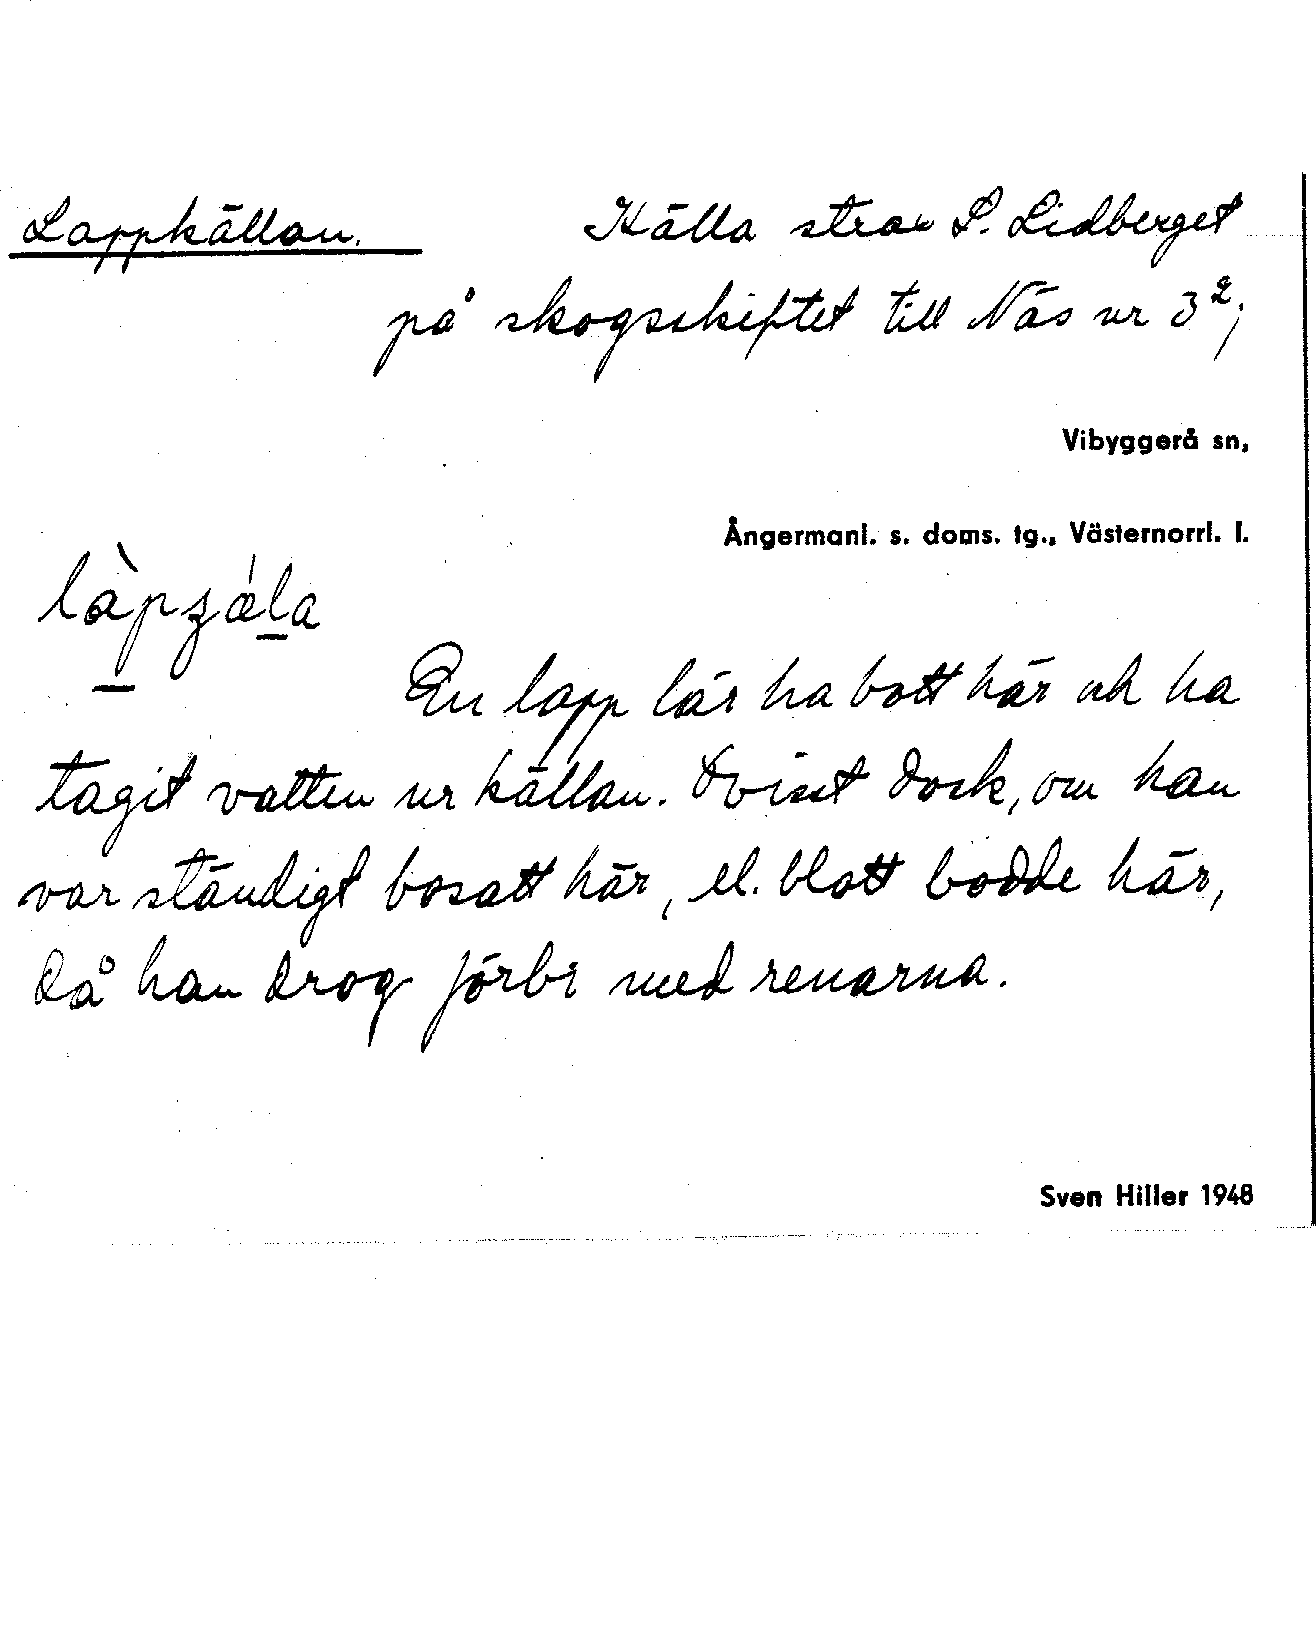 Lappkällan. Källa strax S. Lidberget
på skogsskiftet till Näs nr 3²;
Vibyggerå sn,
Ångermanl. s. doms. tg., Västernorrl. l.
En lapp lär ha bott här och ha
tagit vatten ur källan. Ovisst dock, om han
var ständigt bosatt här, el. blott bodde här,
då han drog förbi med renarna.
Sven Hiller 1948